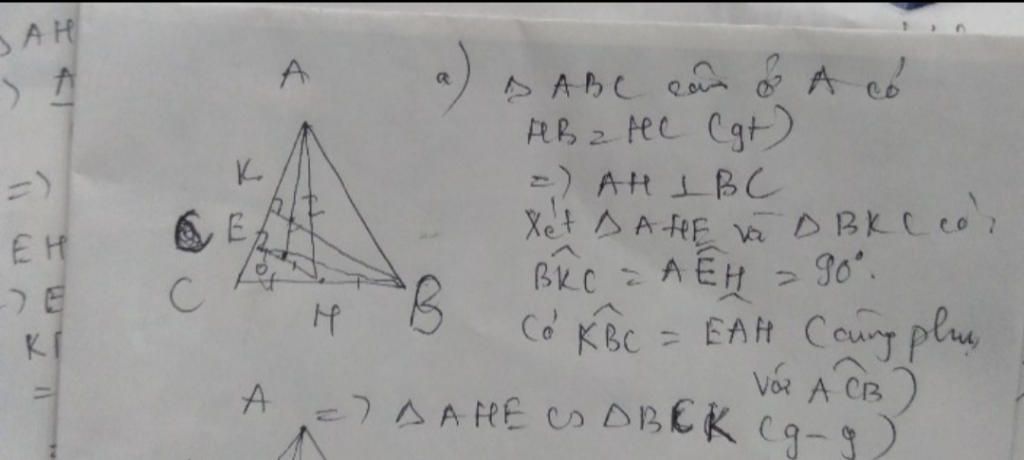 AH
A
=)
EH
=) E
K
=
A
K
E
C
H
B
I
O
a) Δ ABC cân ở A có
HB = HC (gt)
=) AH ⊥ BC
Xét Δ AHE và Δ BKC có:
BKC = AEH = 90°.
Có KBC = EAH (cùng phụ
với ACB)
=) Δ AHE ∽ Δ BCK (g-g)
A